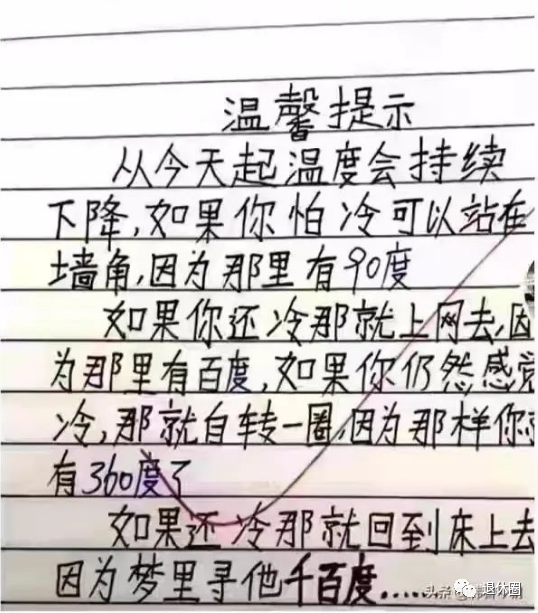 温馨提示
从今天起温度会持续
下降,如果你怕冷可以站在
墙角,因为那里有90度
如果你还冷那就上网去,因
为那里有百度,如果你仍然感觉
冷,那就自转一圈,因为那样你就
有360度了
如果还冷那就回到床上去
因为梦里寻他千百度......
退休圈